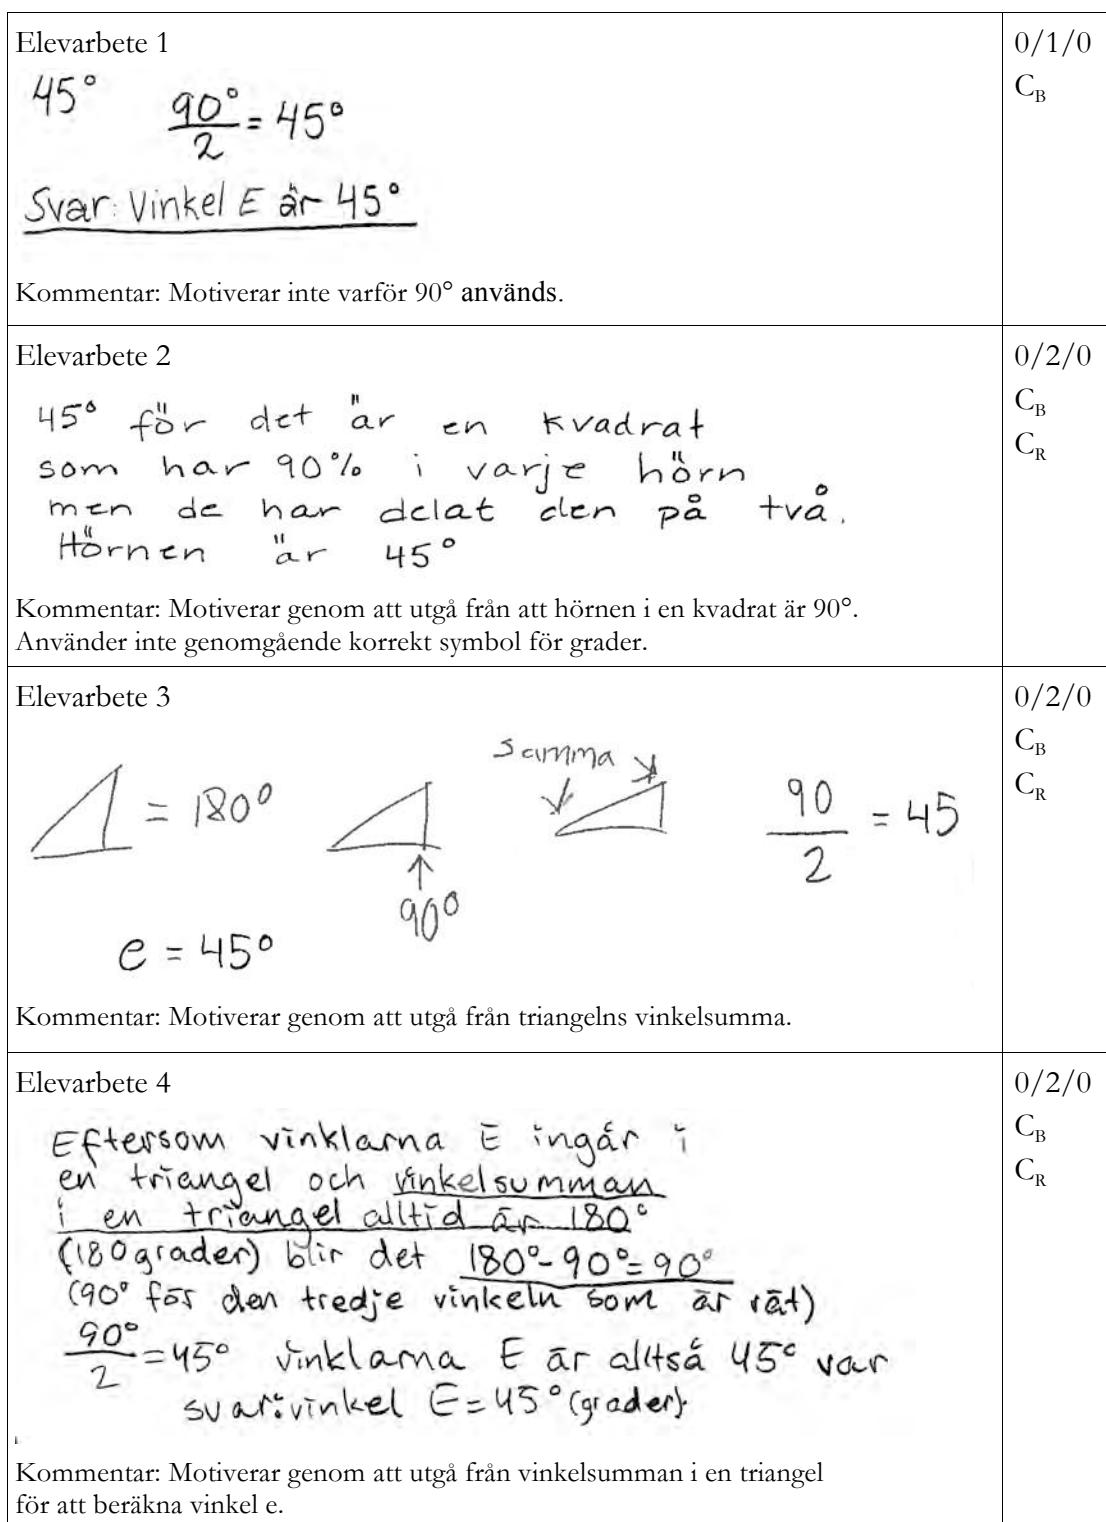 Elevarbete 1
0/1/0
C_B
45°
90°/2 = 45°
Svar: Vinkel E är 45°
Kommentar: Motiverar inte varför 90° används.
Elevarbete 2
0/2/0
C_B
C_R
45° för det är en kvadrat
som har 90% i varje hörn
men de har delat den på två.
Hörnen är 45°
Kommentar: Motiverar genom att utgå från att hörnen i en kvadrat är 90°.
Använder inte genomgående korrekt symbol för grader.
Elevarbete 3
0/2/0
C_B
C_R
= 180°
90°
Samma
90/2 = 45
e = 45°
Kommentar: Motiverar genom att utgå från triangelns vinkelsumma.
Elevarbete 4
0/2/0
C_B
C_R
Eftersom vinklarna E ingår i
en triangel och vinkelsumman
i en triangel alltid är 180°
(180 grader) blir det 180°-90°=90°
(90° för den tredje vinkeln som är rät)
90°/2 = 45° vinklarna E är alltså 45° var
svar: vinkel E = 45° (grader).
Kommentar: Motiverar genom att utgå från vinkelsumman i en triangel
för att beräkna vinkel e.